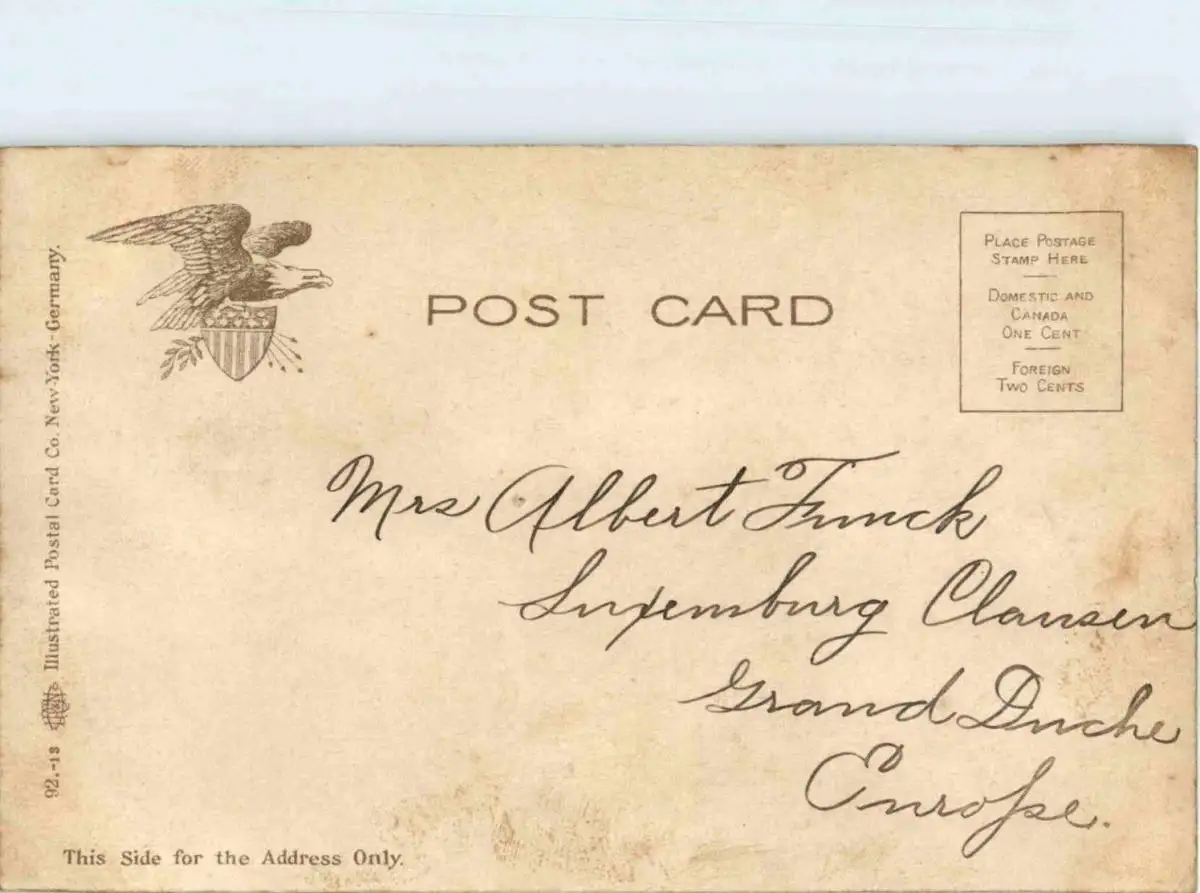 POST CARD
PLACE POSTAGE
STAMP HERE
DOMESTIC AND
CANADA
ONE CENT
FOREIGN
TWO CENTS
Mrs Albert Funck
Luxemburg Clausen
Grand Duche
Europe.
92.-13 Illustrated Postal Card Co. New-York-Germany.
This Side for the Address Only.